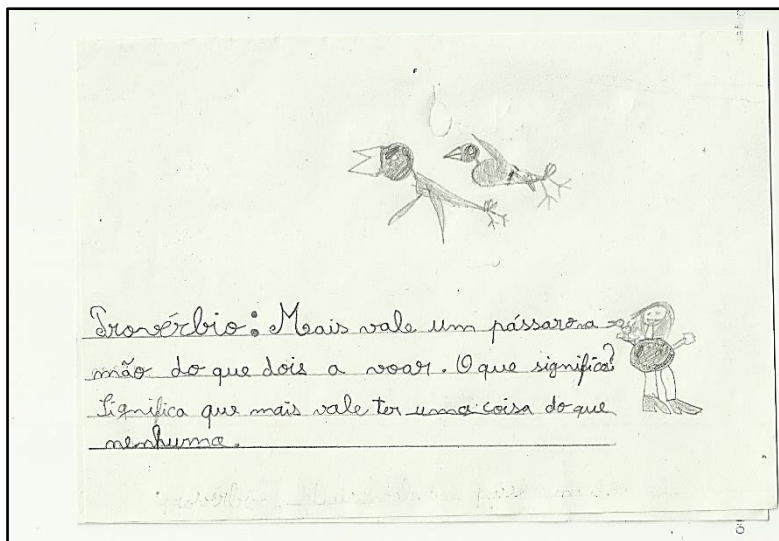 Provérbio: Mais vale um pássaro na
mão do que dois a voar. O que significa?
Significa que mais vale ter uma coisa do que
nenhuma.